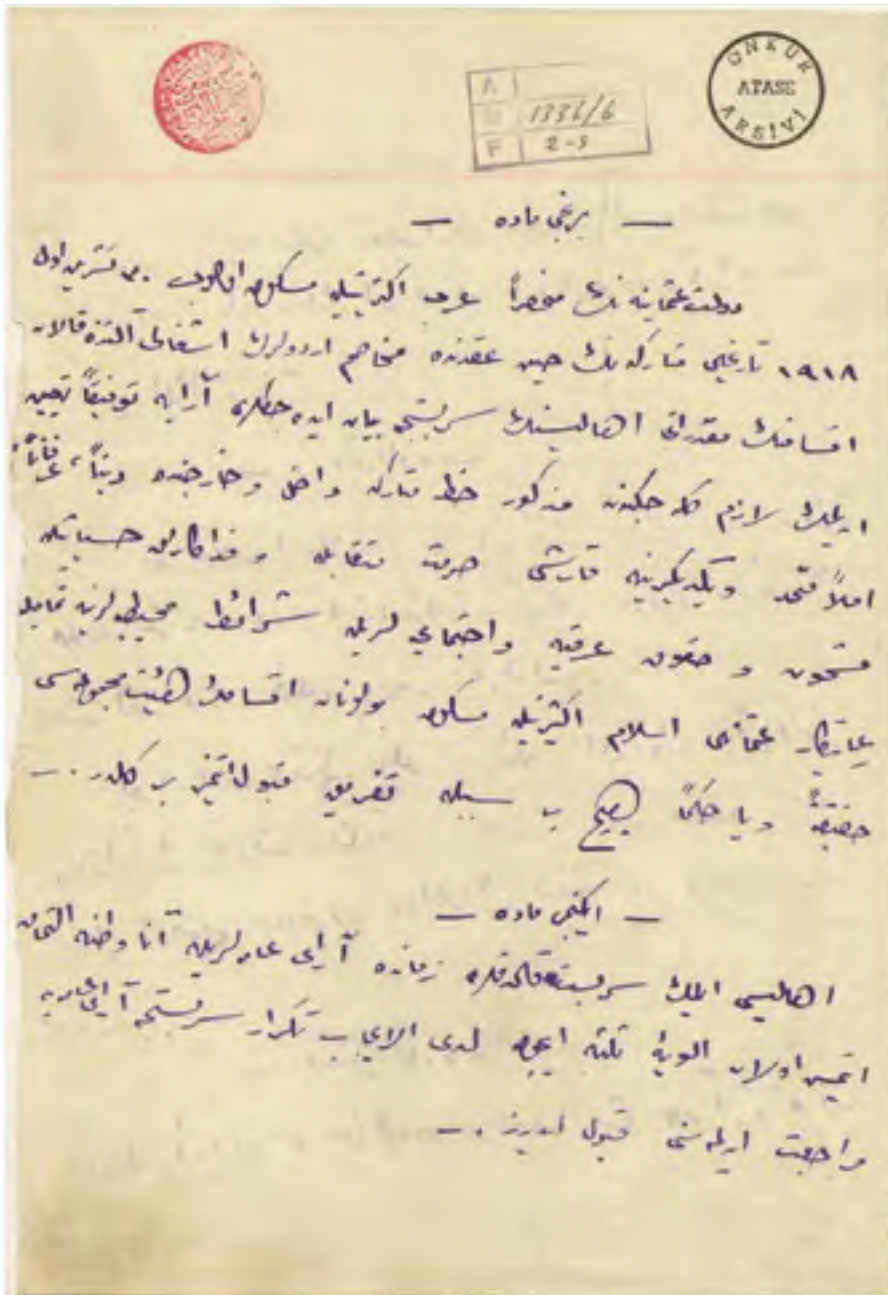 GNKUR ATASE ARŞİVİ
A
1336/6
F 2-3
— برنجی ماده —
دولت عثمانیه نك منحصراً عرب اكثریتیله مسكون اولوب ٣٠ تشرین اول
١٩١٨ تاریخلی متاركه نك حین عقدنده مخاصم اردولرك اشغالی آلتنده قالان
اقسامنك مقدراتی اهالیسنك سربستجه بیان ایده جكلری آرایه توفیقاً تعیین
ایدلمك لازم كله جكندن مذكور خط متاركه داخل و خارجنده دیناً، عرفاناً،
املاً متحد و یكدیكرینه قارشی حرمت متقابله و فداكارلق حسیاتیله
مشحون و حقوق عرقیه و اجتماعیه لریله شرائط محیطیه لرینه تمامیله
رعایتكار عثمانلی اسلام اكثریتیله مسكون بولونان اقسامك هیئت مجموعه سی
حقیقةً و یا حكماً هیچ بر سببله تفریق قبول ایتمز بر كلدر. —
— ایكنجی ماده —
اهالیسی ایلك سربست قالدقلری زمانده آرای عامه لریله آنا وطنه التحاق
ایتمش اولان الویهٔ ثلثه ایچون لدی الایجاب تكرار سربستجه آرای عامه یه
مراجعت ایدلمسنی قبول ایدرز. —